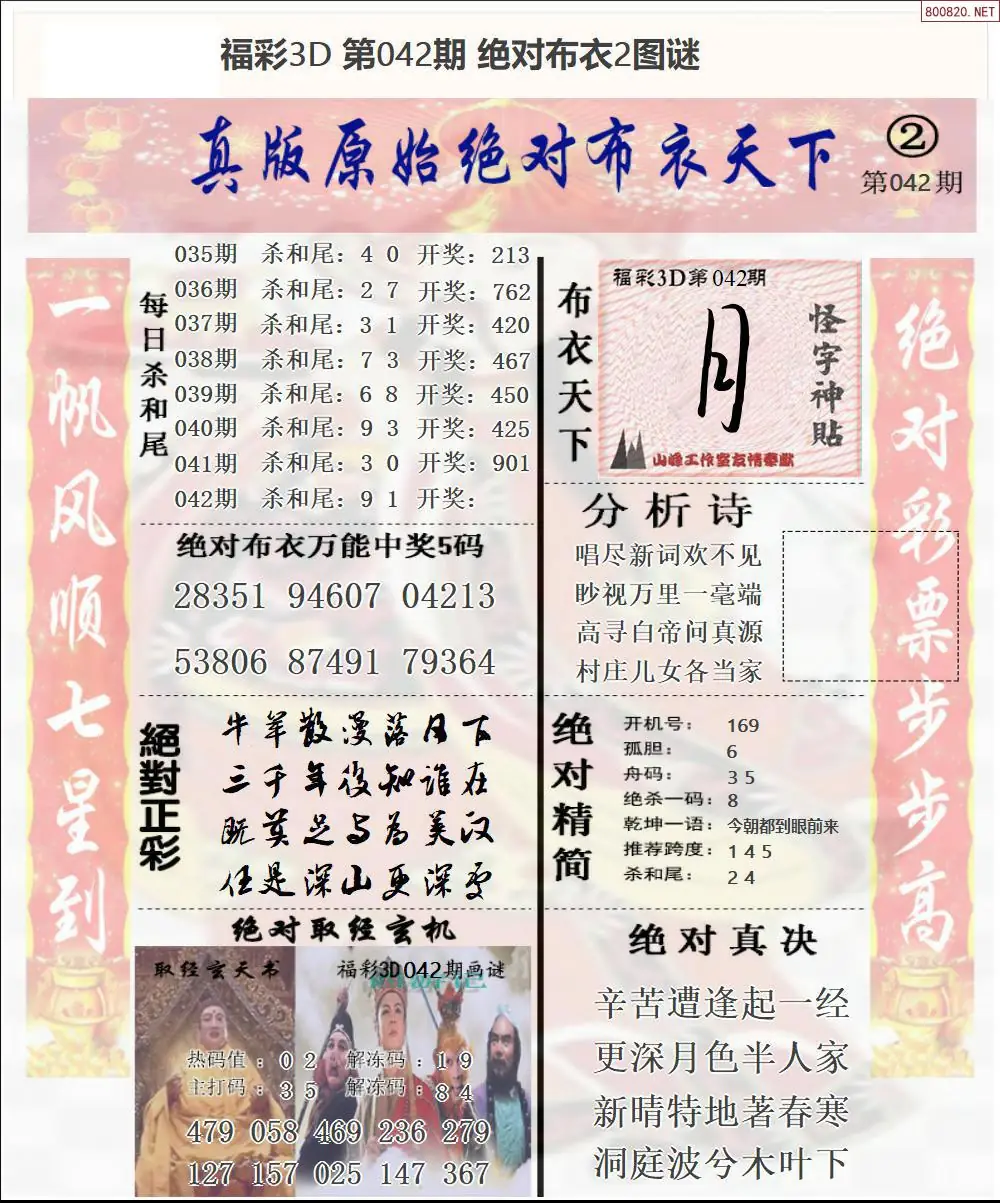 800820.NET
福彩3D 第042期 绝对布衣2图谜
真版原始绝对布衣天下
②
第042期
一帆风顺七星到
每日杀和尾
035期 杀和尾：4 0 开奖：213
036期 杀和尾：2 7 开奖：762
037期 杀和尾：3 1 开奖：420
038期 杀和尾：7 3 开奖：467
039期 杀和尾：6 8 开奖：450
040期 杀和尾：9 3 开奖：425
041期 杀和尾：3 0 开奖：901
042期 杀和尾：9 1 开奖：
绝对布衣万能中奖5码
28351 94607 04213
53806 87491 79364
絕對正彩
牛羊散漫落日下
三千年後知谁在
既莫足与为美汉
任是深山更深雪
绝对取经玄机
取经玄天书
福彩3D042期画谜
热码值：0 2 解冻码：1 9
主打码：3 5 解冻码：8 4
479 058 469 236 279
127 157 025 147 367
布衣天下
福彩3D第042期
月
怪字神贴
山峰工作室友情奉献
分析诗
唱尽新词欢不见
眇视万里一毫端
高寻白帝问真源
村庄儿女各当家
绝对精简
开机号：169
孤胆：6
舟码：3 5
绝杀一码：8
乾坤一语：今朝都到眼前来
推荐跨度：1 4 5
杀和尾：2 4
绝对真决
辛苦遭逢起一经
更深月色半人家
新晴特地著春寒
洞庭波兮木叶下
绝对彩票步步高